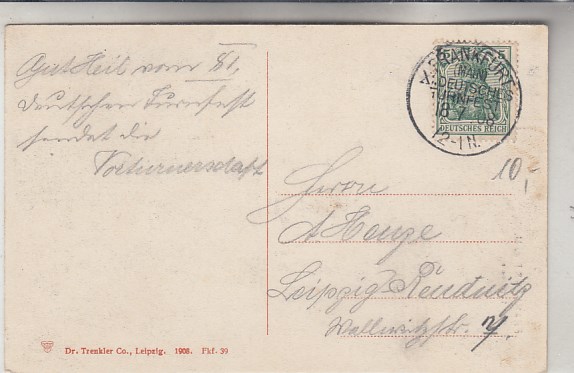 Gut Heil vom XI.
deutschen Turnfest
sendet die
Vorturnerschaft
FRANKFURT
(MAIN)
XI. DEUTSCHES
TURNFEST
18 7 08
12-1 N.
DEUTSCHES REICH
10,-
Herrn
A Hauze
Leipzig Reudnitz
Wallwitzstr.
Dr. Trenkler Co., Leipzig. 1908. Fkf. 39